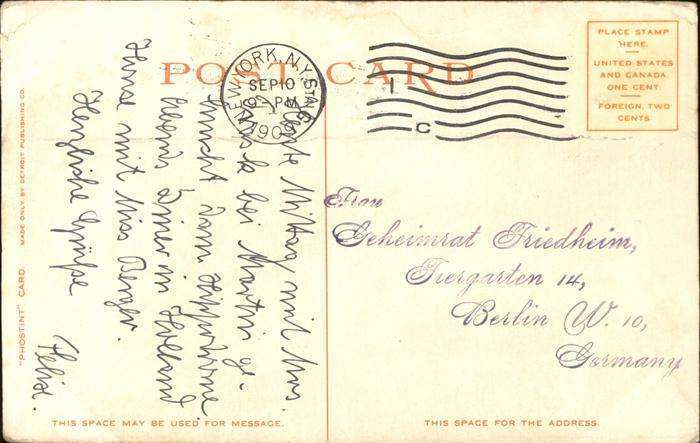 POST CARD
PLACE STAMP
HERE.
UNITED STATES
AND CANADA
ONE CENT
FOREIGN, TWO
CENTS
NEW YORK, N.Y. STA.
SEP 10
9 PM
190
C
Mittag mit Mrs.
bei Martin ge-
dann Hippodrome
Abends Diner in Holland
House mit Miss Berger.
Herzliche Grüße
Felix.
Frau
Geheimrat Friedheim,
Tiergarten 14,
Berlin W. 10,
Germany
"PHOSTINT" CARD.
MADE ONLY BY DETROIT PUBLISHING CO.
THIS SPACE MAY BE USED FOR MESSAGE.
THIS SPACE FOR THE ADDRESS.